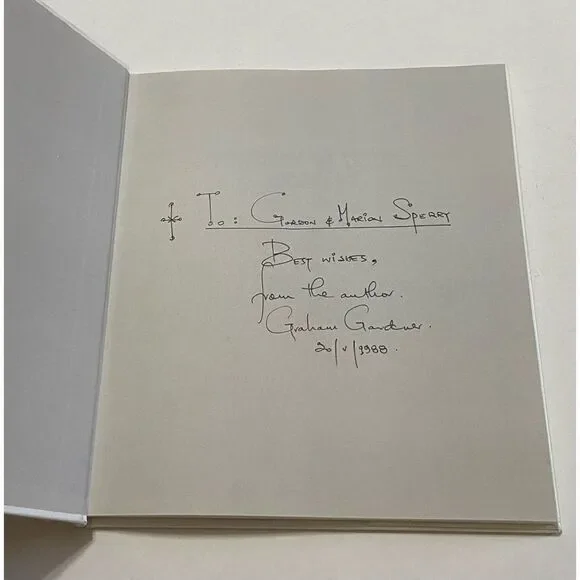 To: Gordon & Marion Sperry
Best wishes,
from the author.
Graham Gardner.
20/v/1988.